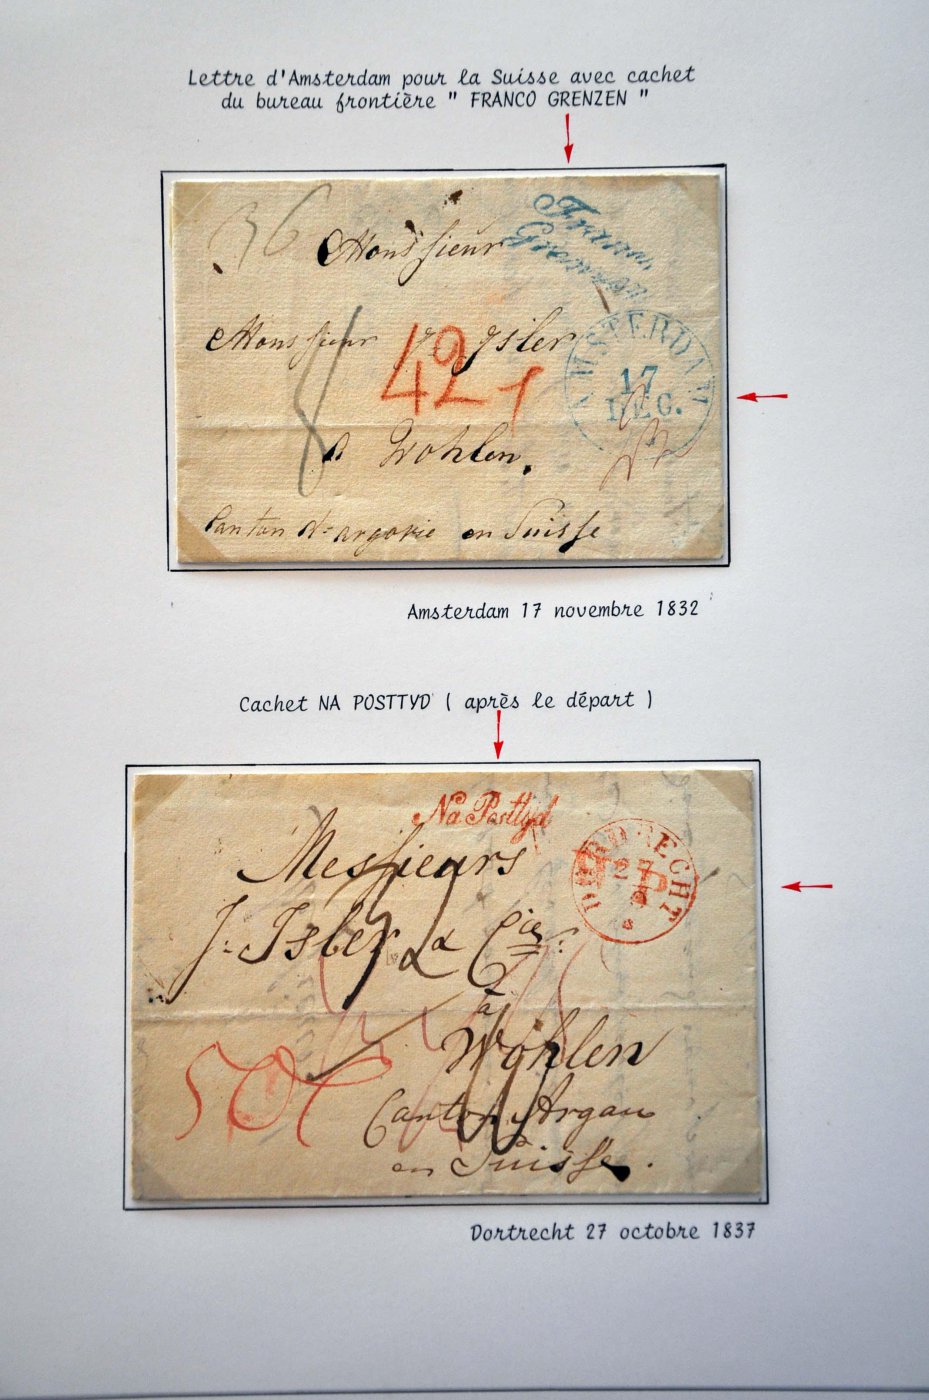 Lettre d'Amsterdam pour la Suisse avec cachet
du bureau frontière " FRANCO GRENZEN "
36
Franco
Grenzen
Monsieur
AMSTERDAM
17
DEC.
Monsieur Isler
42
à Wohlen.
Canton d'argovie en Suisse
Amsterdam 17 novembre 1832
Cachet NA POSTTYD ( après le départ )
Na Posttyd
DORDRECHT
27
Messieurs
J. Isler & Cie.
à
Wohlen
Canton Argau
en Suisse.
Dortrecht 27 octobre 1837